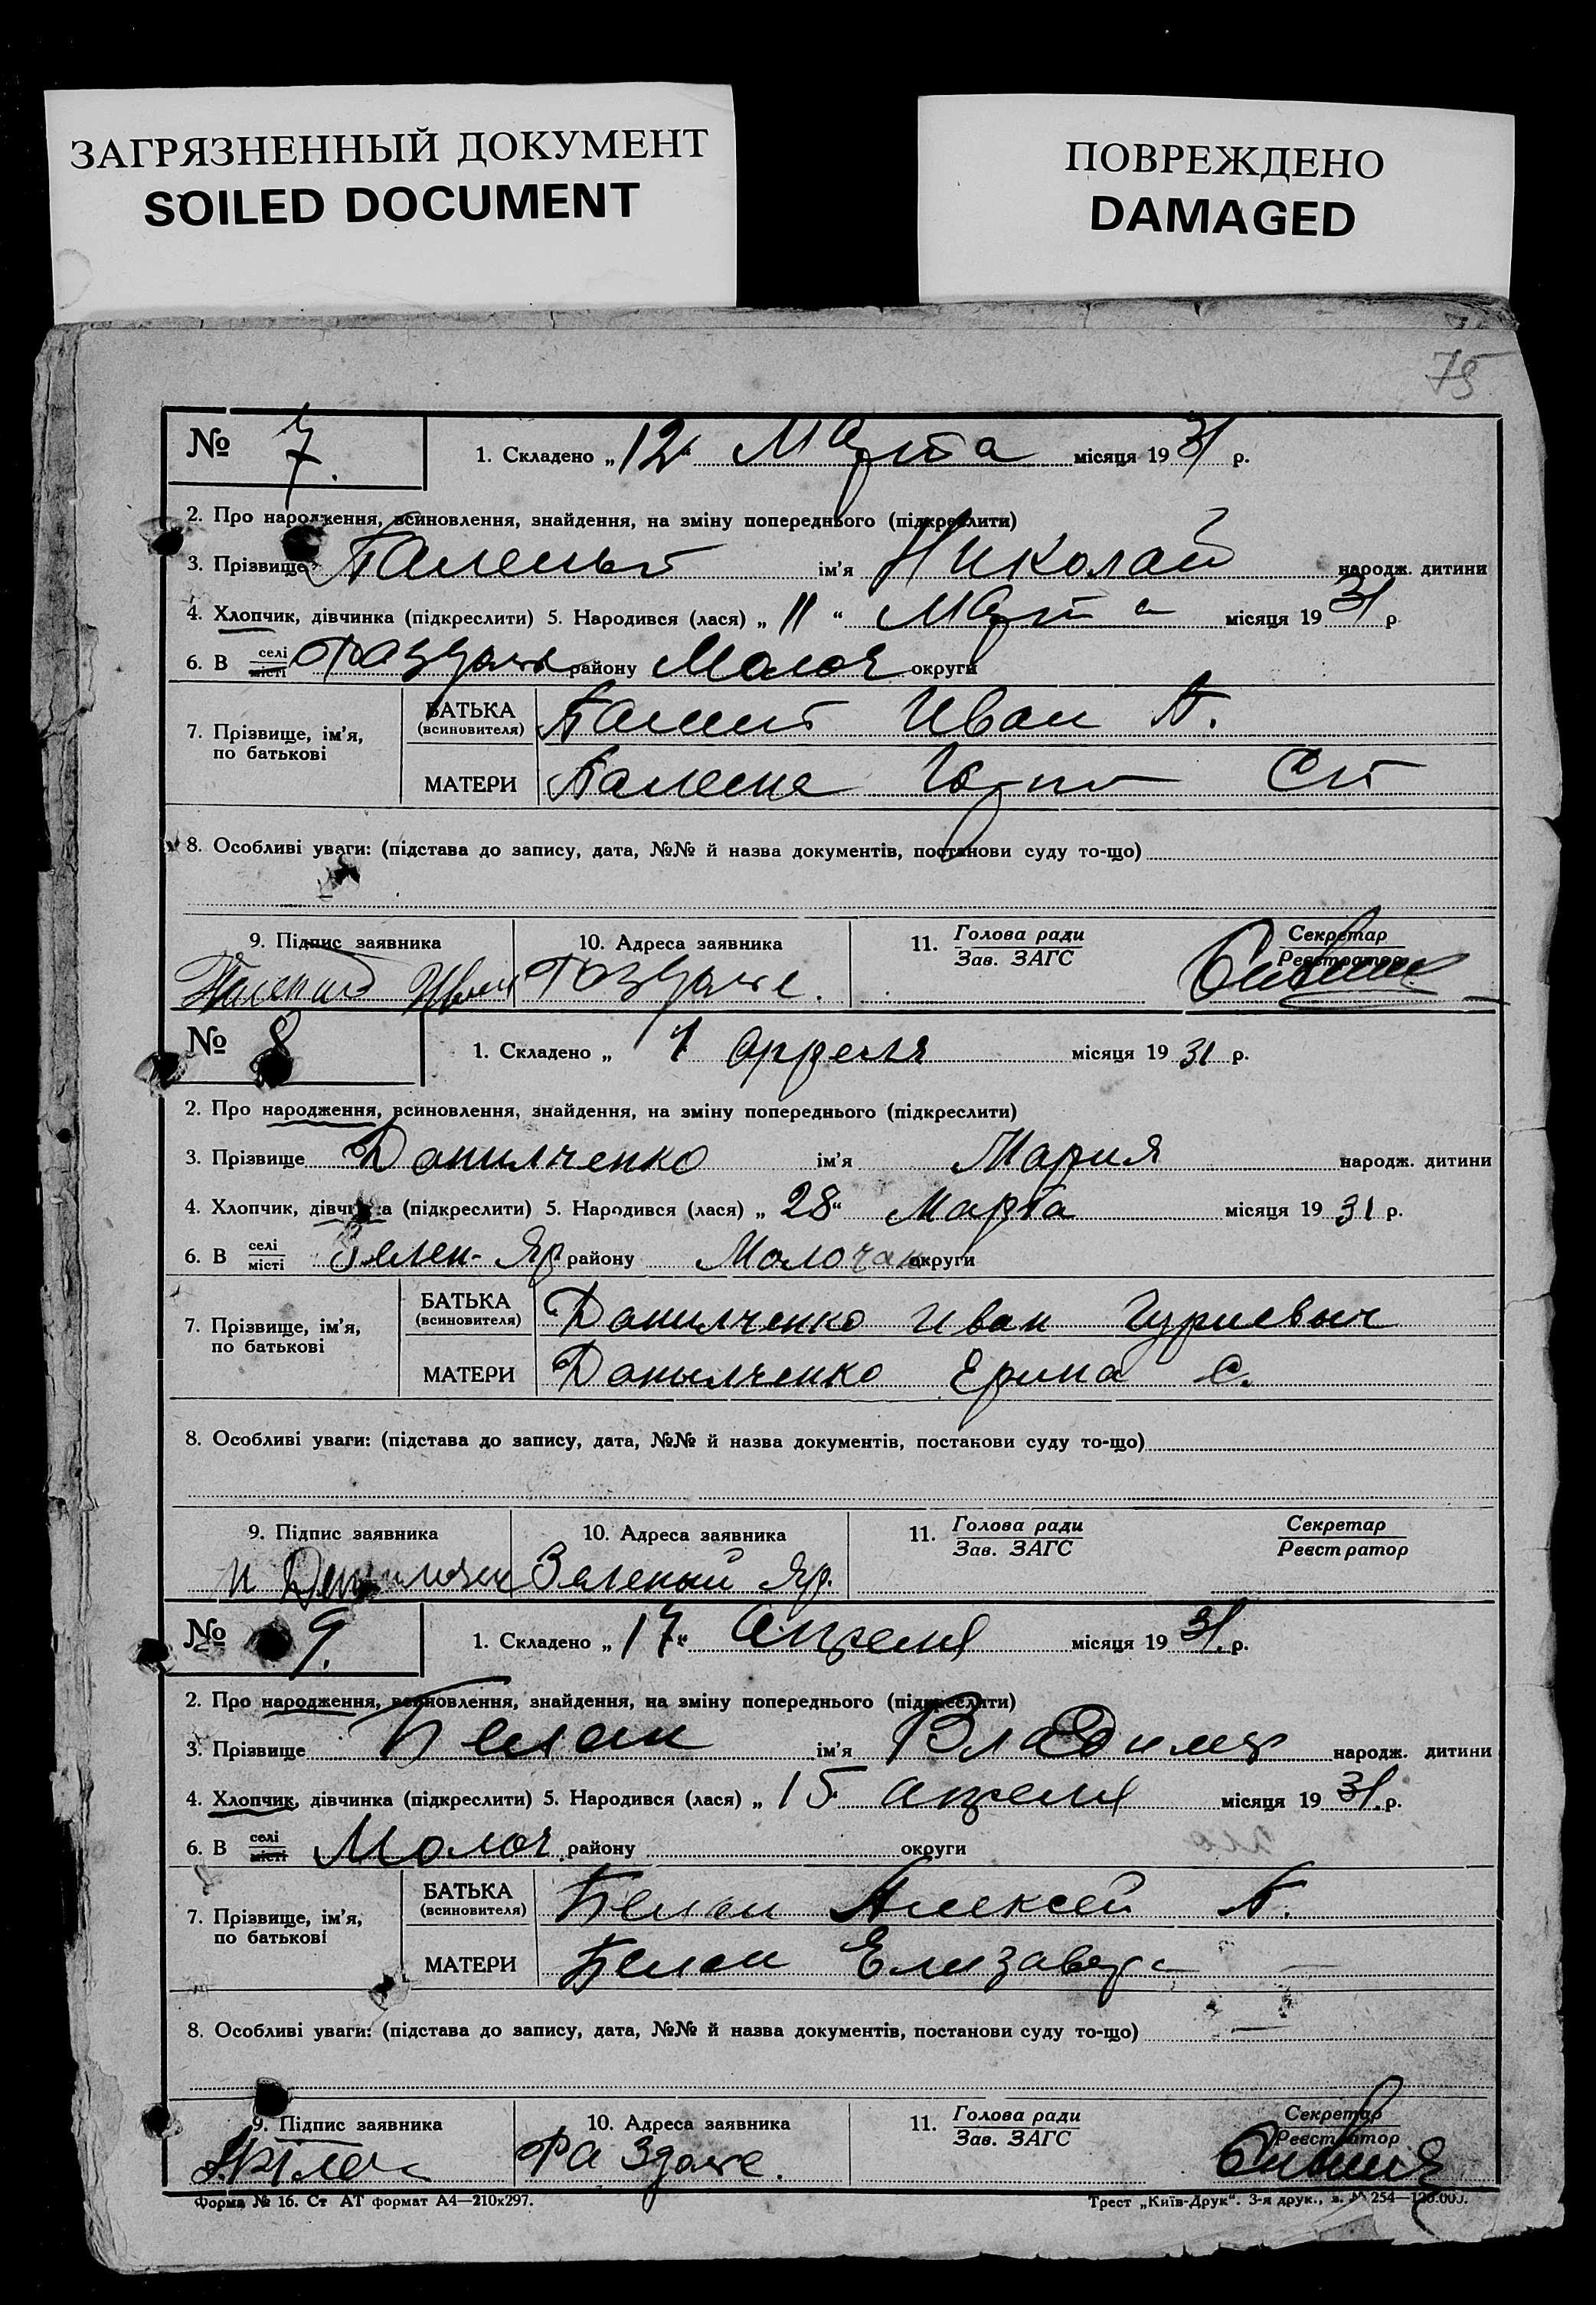 ЗАГРЯЗНЕННЫЙ ДОКУМЕНТ
SOILED DOCUMENT
ПОВРЕЖДЕНО
DAMAGED
75
№ 7. 1. Складено „12“ Марта місяця 1931 р.
2. Про народження, всиновлення, знайдення, на зміну попереднього (підкреслити)
3. Прізвище ім'я Николай народж. дитини
4. Хлопчик, дівчинка (підкреслити) 5. Народився (лася) „11“ Марта місяця 1931 р
6. В селі місті району Молоч округи
7. Прізвище, ім'я, по батькові
БАТЬКА (всиновителя) Иван П.
МАТЕРИ
8. Особливі уваги: (підстава до запису, дата, №№ й назва документів, постанови суду то-що)
9. Підпис заявника 10. Адреса заявника 11. Голова ради Зав. ЗАГС Секретар Реєстратор
№ 8 1. Складено „ 1 апреля місяця 1931 р.
2. Про народження, всиновлення, знайдення, на зміну попереднього (підкреслити)
3. Прізвище Данилченко ім'я Мария народж. дитини
4. Хлопчик, дівчинка (підкреслити) 5. Народився (лася) „28“ Марта місяця 1931 р.
6. В селі місті Зелен-Яр району Молочан округи
7. Прізвище, ім'я, по батькові
БАТЬКА (всиновителя) Данилченко Иван Гуриевич
МАТЕРИ Данылченко Ерина С.
8. Особливі уваги: (підстава до запису, дата, №№ й назва документів, постанови суду то-що)
9. Підпис заявника 10. Адреса заявника 11. Голова ради Зав. ЗАГС Секретар Реєстратор
Зеленый Яр.
№ 9. 1. Складено „17“ Апреля місяця 1931 р.
2. Про народження, всиновлення, знайдення, на зміну попереднього (підкреслити)
3. Прізвище Белан ім'я Владимир народж. дитини
4. Хлопчик, дівчинка (підкреслити) 5. Народився (лася) „15“ апреля місяця 1931 р.
6. В селі місті Молоч району округи
7. Прізвище, ім'я, по батькові
БАТЬКА (всиновителя) Белан Алексей П.
МАТЕРИ Белан Елизавета
8. Особливі уваги: (підстава до запису, дата, №№ й назва документів, постанови суду то-що)
9. Підпис заявника 10. Адреса заявника 11. Голова ради Зав. ЗАГС Секретар Реєстратор
Форма № 16. Ст АТ формат А4—210x297. Трест „Київ-Друк“. 3-я друк., з. № 254—